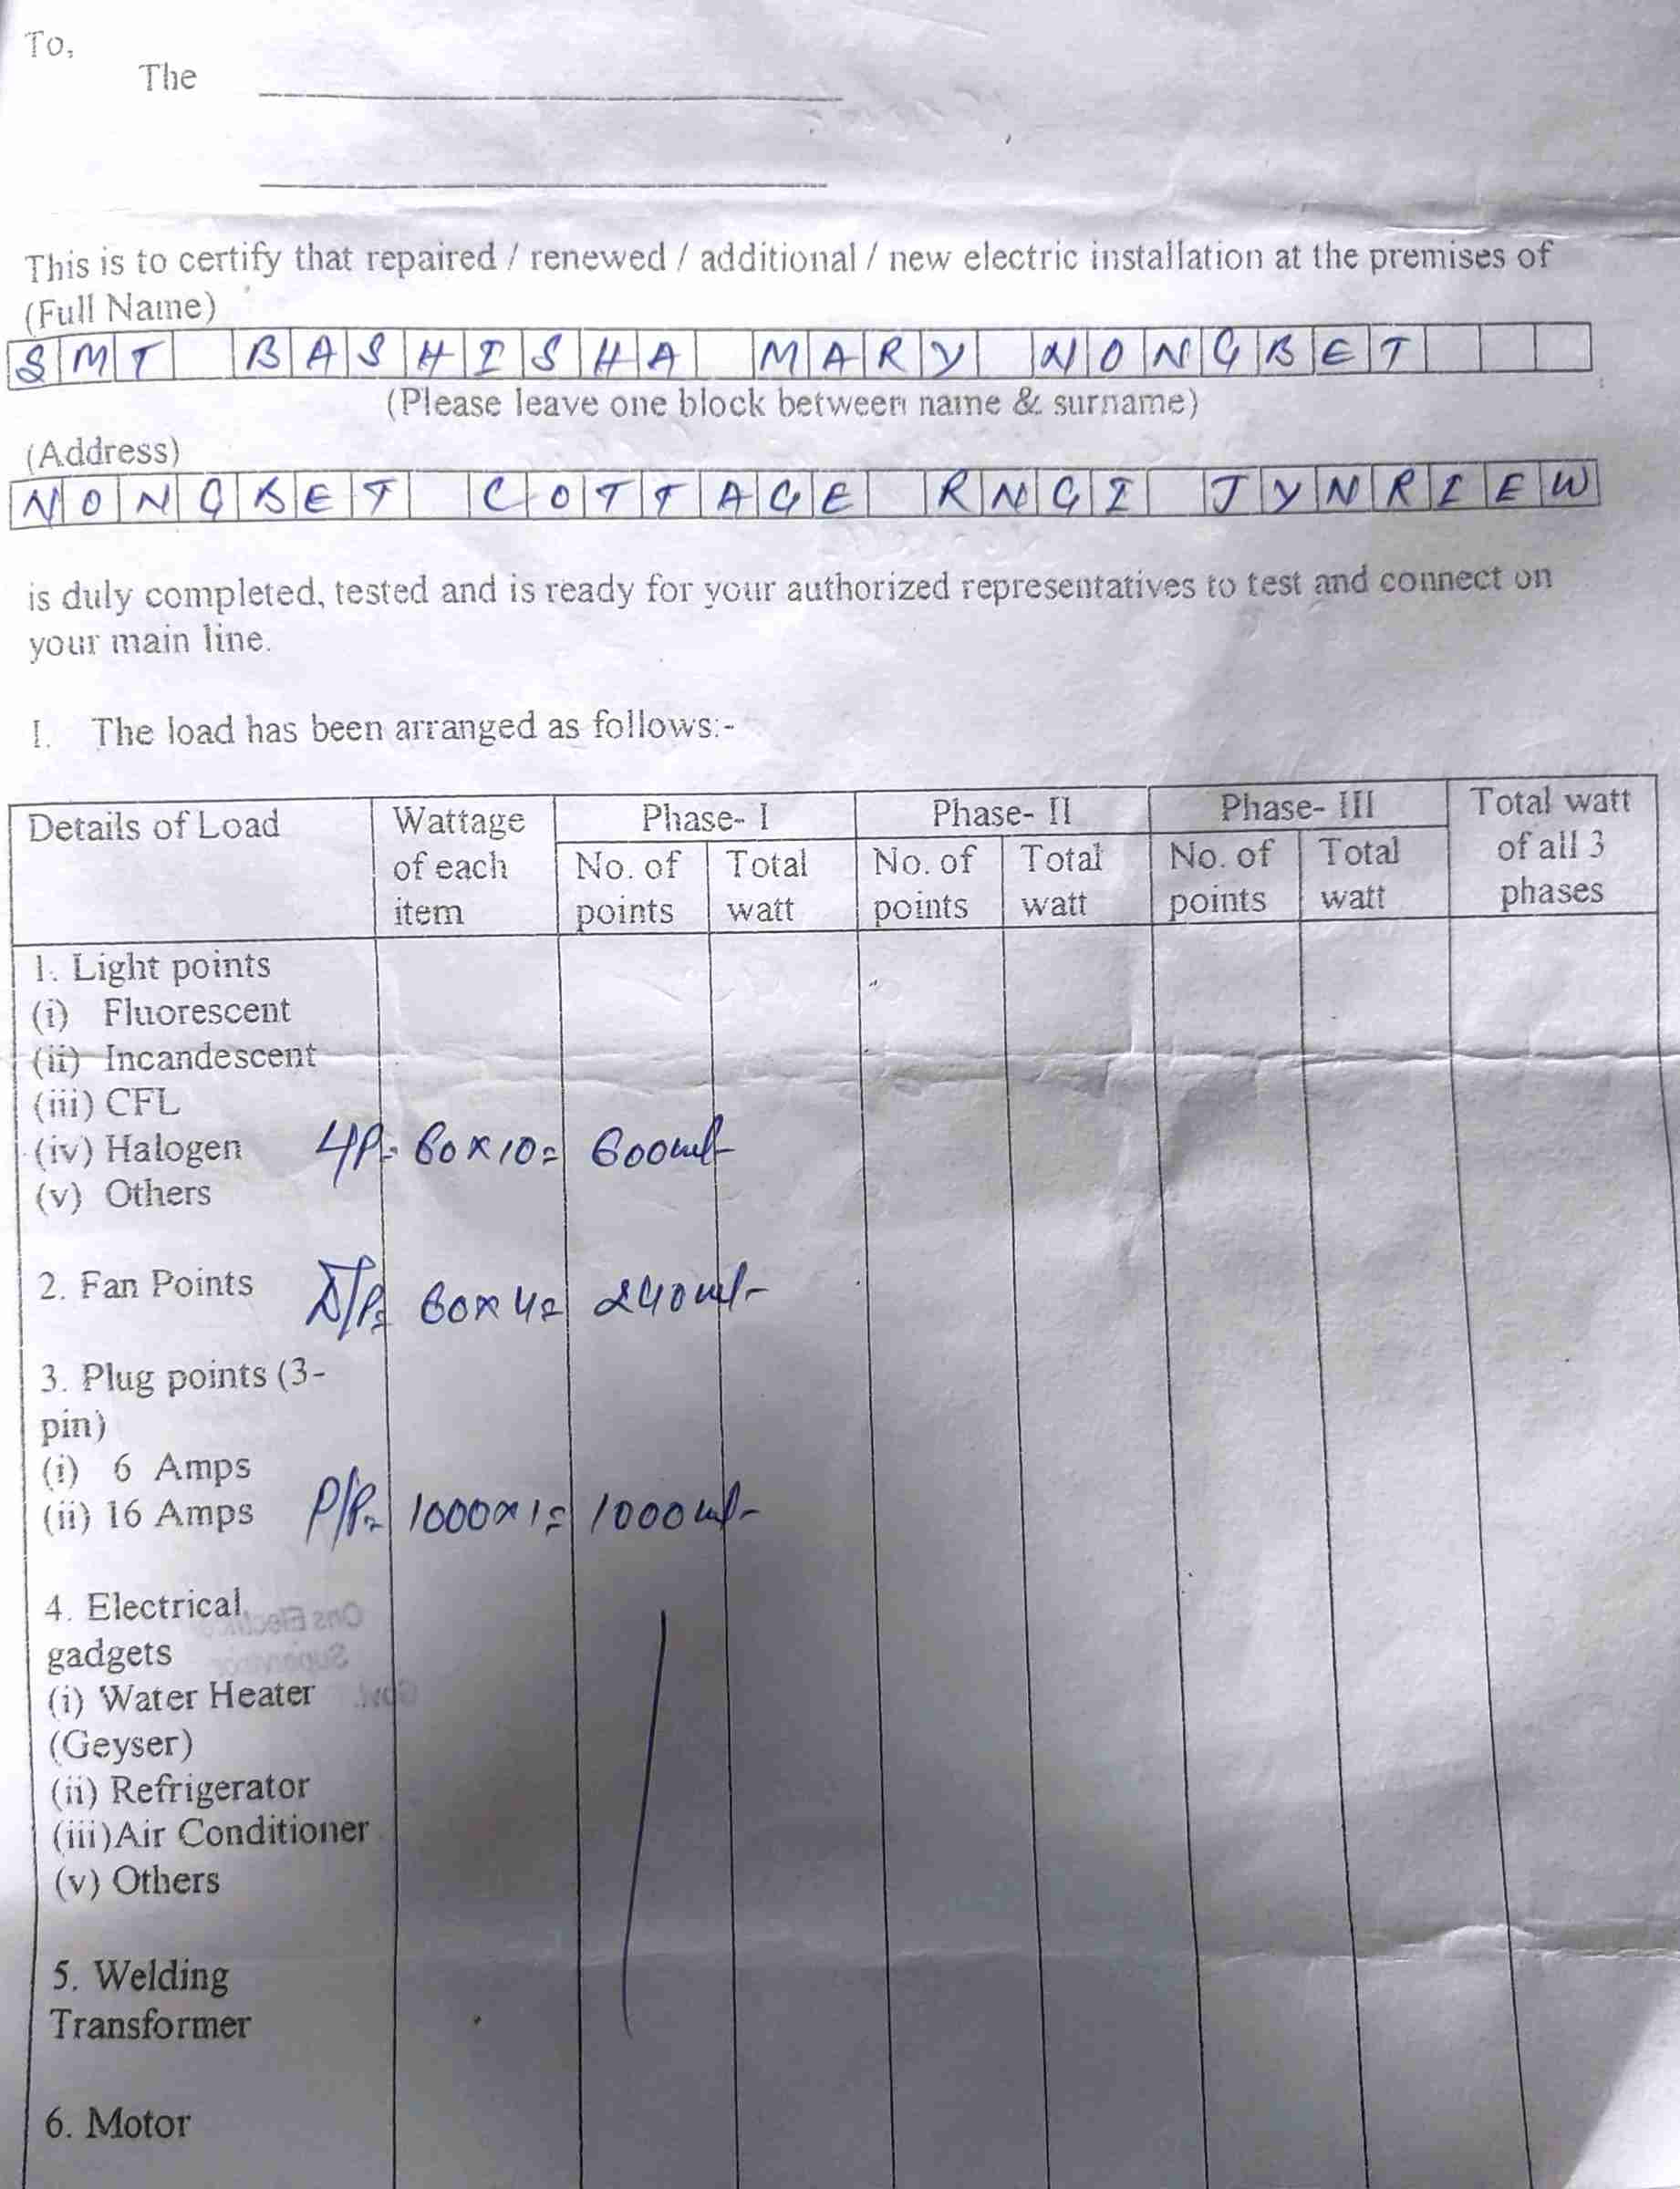 To,
The
This is to certify that repaired / renewed / additional / new electric installation at the premises of
(Full Name)
SMT BASHISHA MARY NONGBET
(Please leave one block between name & surname)
(Address)
NONGBET COTTAGE RNGI JYNRIEW
is duly completed, tested and is ready for your authorized representatives to test and connect on
your main line.
I. The load has been arranged as follows:-
Details of Load
Wattage of each item
Phase- I
Phase- II
Phase- III
Total watt of all 3 phases
No. of points
Total watt
No. of points
Total watt
No. of points
Total watt
1. Light points
(i) Fluorescent
(ii) Incandescent
(iii) CFL
(iv) Halogen 60x10= 600
(v) Others
2. Fan Points 60x4= 240
3. Plug points (3-
pin)
(i) 6 Amps
(ii) 16 Amps P/P= 1000x1= 1000
4. Electrical
gadgets
(i) Water Heater
(Geyser)
(ii) Refrigerator
(iii)Air Conditioner
(v) Others
5. Welding
Transformer
6. Motor